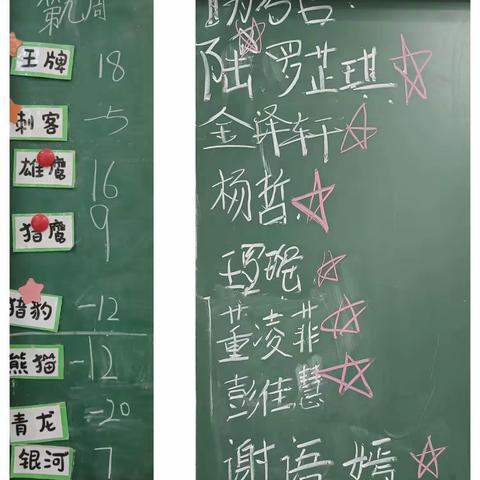 王牌 18
刺客 -5
雄鹰 16
猎鹰 9
猎豹 -12
熊猫 -12
青龙 -20
银河 7
陆 罗芷琪
金泽轩
杨哲
董凌菲
彭佳慧
谢语嫣